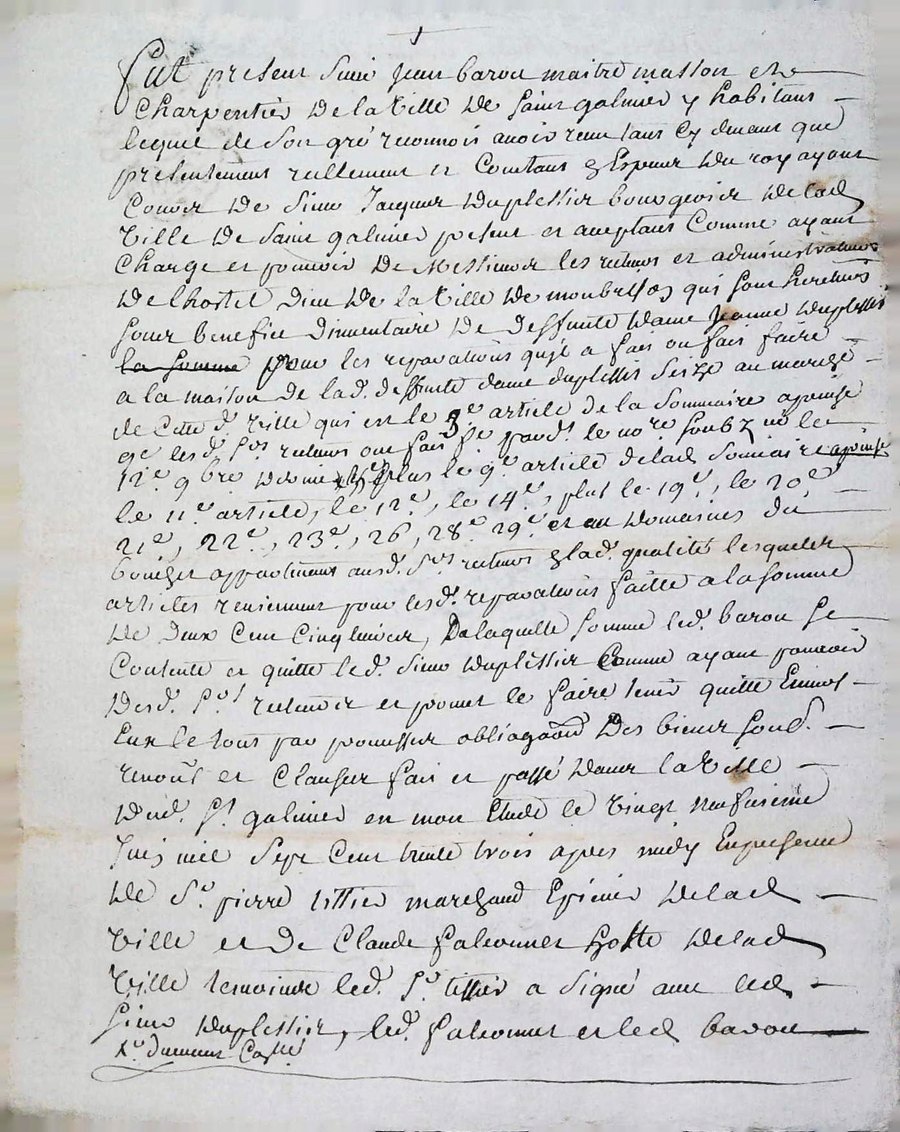 fut present sieur Jean baron maitre masson et
Charpentier de la ville de saint galmier y habitant
lequel de son gré reconnoit avoir reçu tant cy devant que
presentement reellement et Contant Espece du roy ayant
Cours de sieur Jacques duplessier bourgeois de lad
ville de saint galmier present et acceptant Comme ayant
charge et pouvoir de Messieurs les recteurs et administrateurs
de lhostel dieu de la ville de montbrison qui sont heretiers
sous benefice dinventaire de deffunte dame jeanne duplessis
la somme pour les reparations quil a fait ou fait faire
a la maison de lad. deffunte dame duplessis size au marché
de cette d. ville qui est le 3e article de la sommaire aprise
que les d. srs recteurs ont fait par le no.re soubz né le
12e 9bre dernier plus le 9e article de lad sommaire aprise
le 11e article, le 12e, le 14e, plus le 19e, le 20e
21e, 22e, 23e, 26, 28e 29e et au domaines du
appartenant ausd. srs recteurs lad. qualité lesquelles
articles reviennent pour lesd. reparations faitte a la somme
de deux Cent Cinq livres, De laquelle somme led. baron se
Contente et quitte led. sieur duplessier Comme ayant pouvoir
desd. srs recteurs et promet le faire tenir quitte Envers
Eux le tout par promesses obligaõn des biens soud.
renonõns et Clauses fait et passé dans la ville
dud. st galmier en mon Etude le vingt neufvieme
Juin mil sept Cent trente trois apres midy En presence
de sr pierre tissier marchand Epicier de lad
ville et de Claude falconnet hoste de lad
ville temoins led. sr tissier a signé avec led
sieur duplessier, led. falconnet et led baron